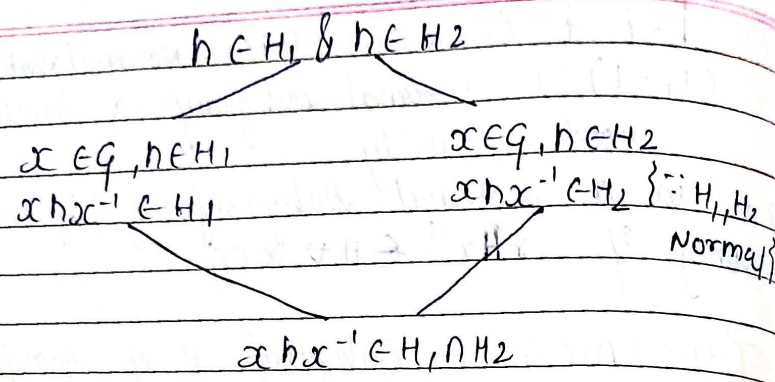 h ∈ H₁ & h ∈ H2
x ∈ G, h ∈ H₁
x ∈ G, h ∈ H2
xhx⁻¹ ∈ H₁
xhx⁻¹ ∈ H₂ {∵ H₁, H₂
Normal}
xhx⁻¹ ∈ H₁ ∩ H2